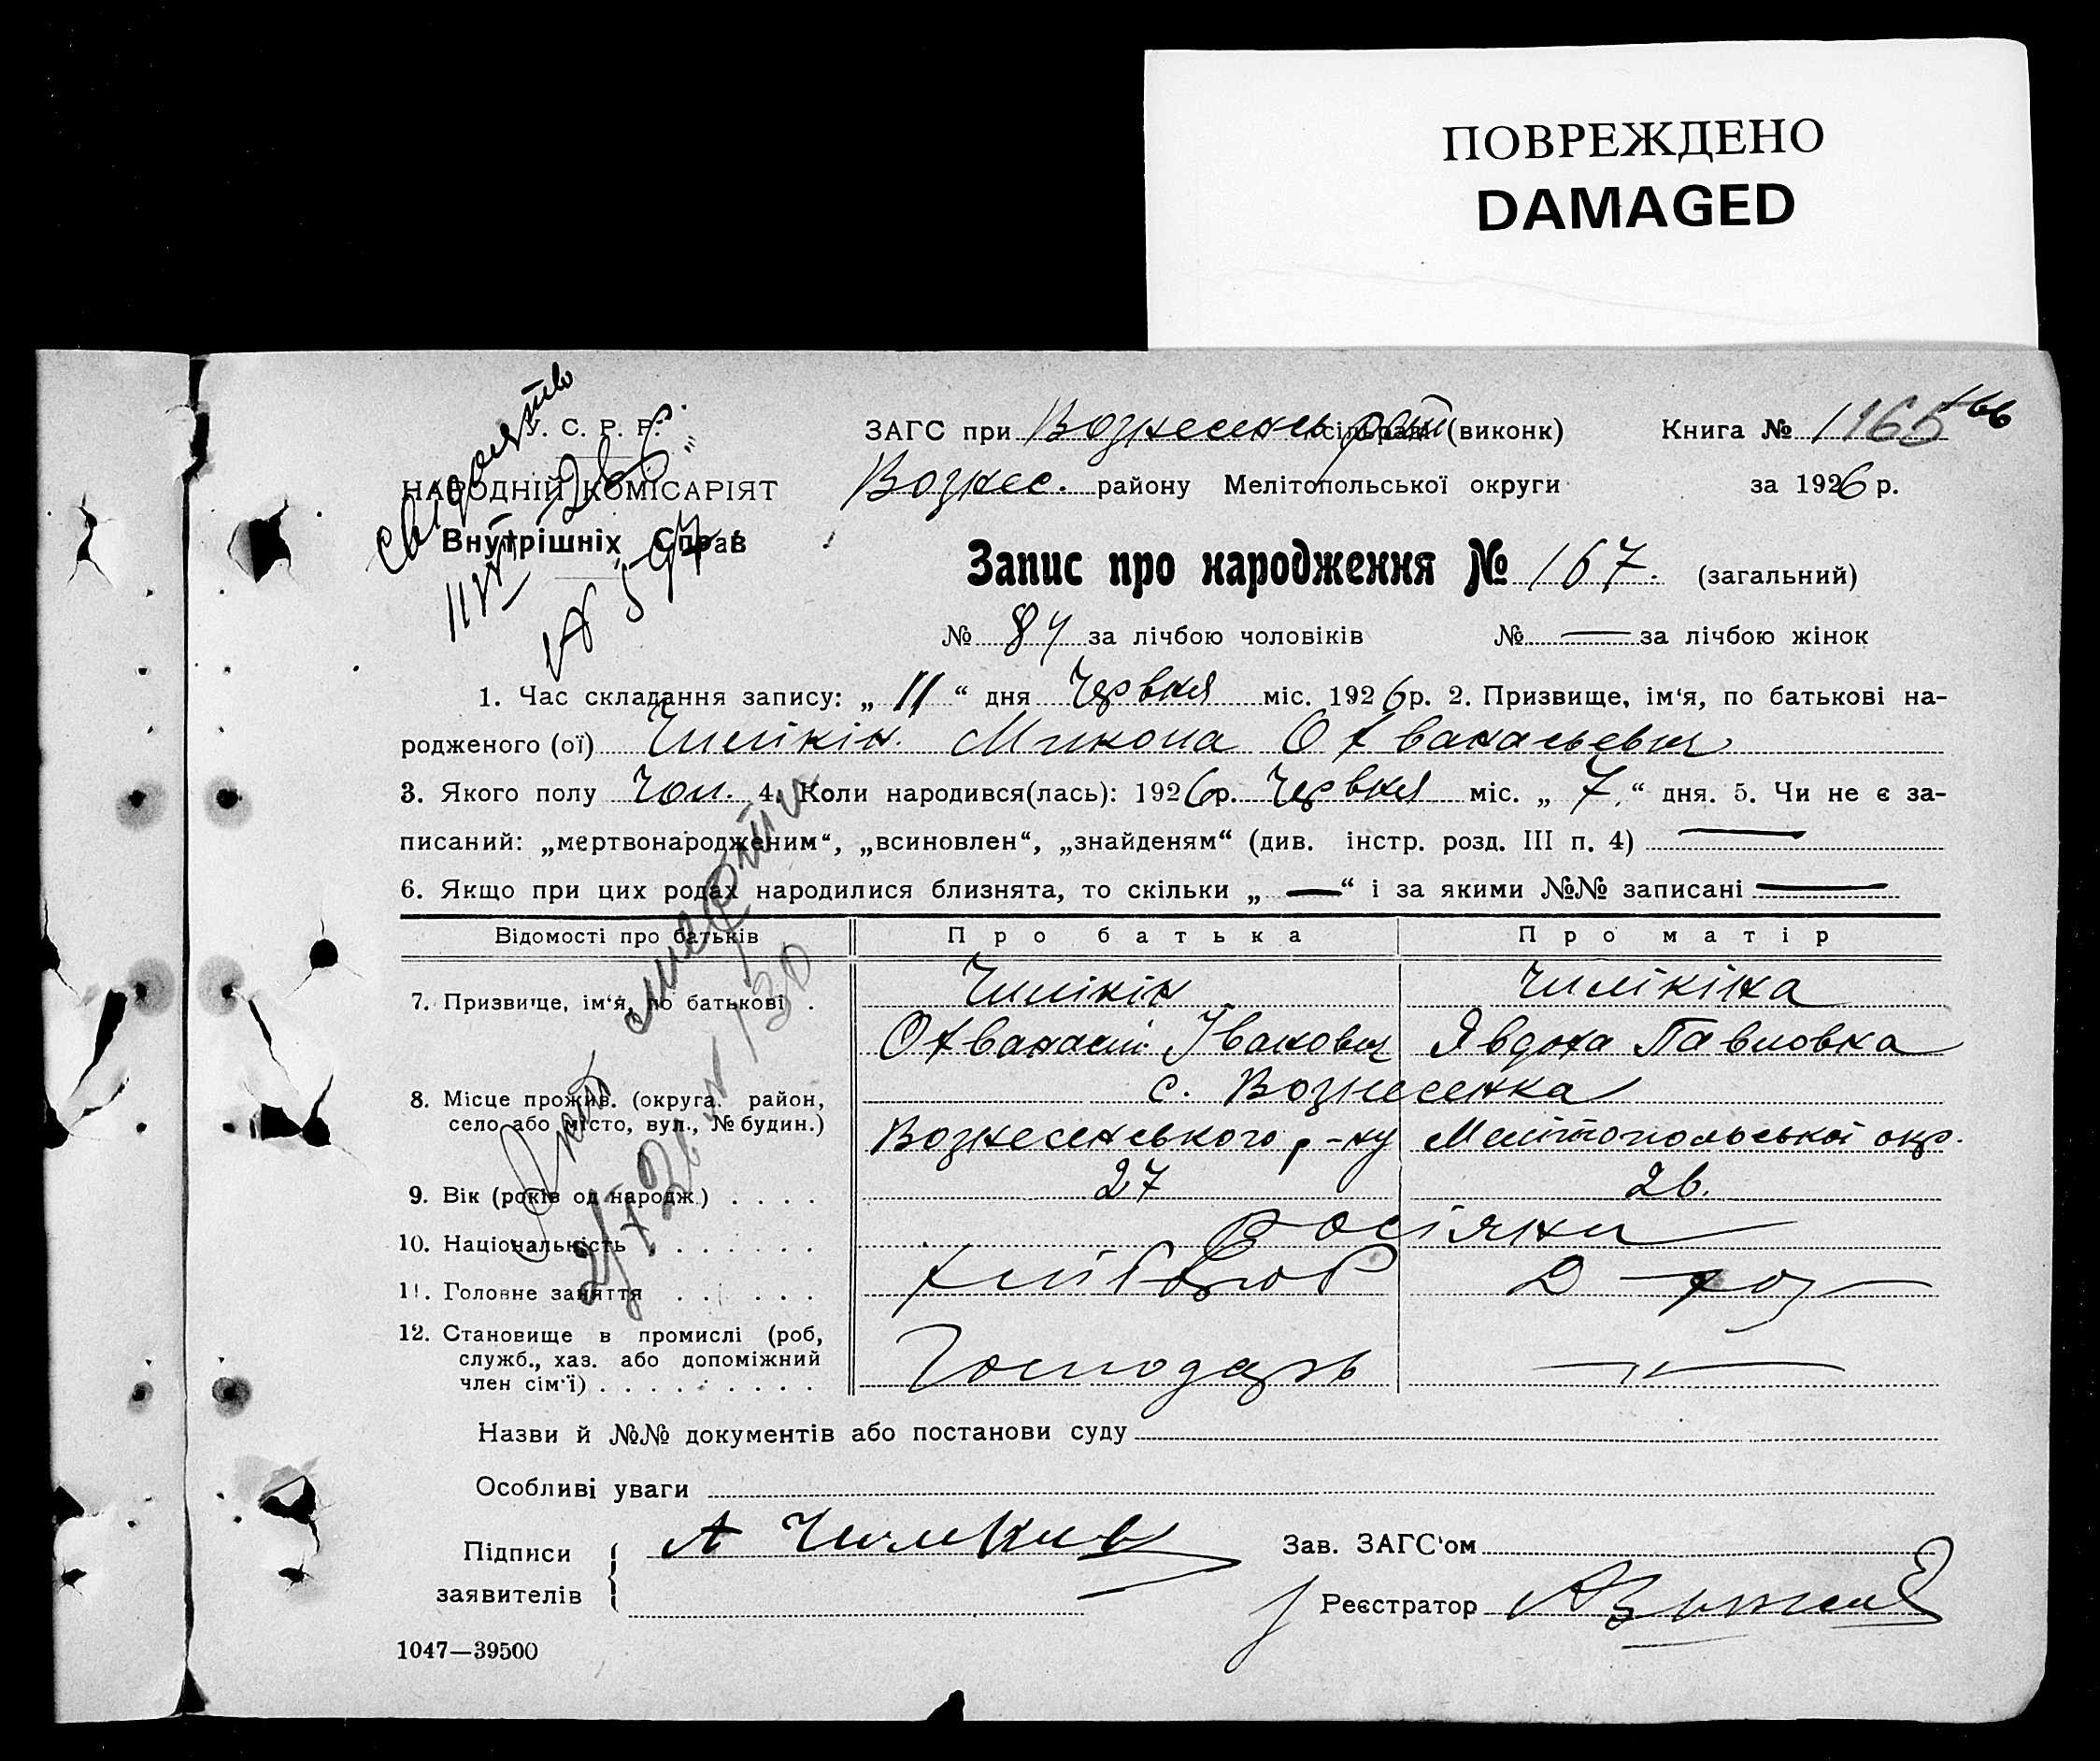 ПОВРЕЖДЕНО
DAMAGED
свідоцтво
У. С. Р. Р.
НАРОДНІЙ КОМІСАРІЯТ
Внутрішніх Справ
11/VI 26 р.
№ 597
ЗАГС при Вознесенськ сільраді (виконк) Книга № 1
Вознес. району Мелітопольської округи за 1926 р.
Запис про народження № 167. (загальний)
№ 84 за лічбою чоловіків № — за лічбою жінок
1. Час складання запису: „ 11 “ дня Червня міс. 1926 р. 2. Призвище, ім‘я, по батькові на-
родженого (ої) Чилікін Микола Охванасьевич
3. Якого полу Чол. 4. Коли народився(лась): 1926 р. Червня міс. „ 7 “ дня. 5. Чи не є за-
писаний: „мертвонародженим“, „всиновлен“, „знайденям“ (див. інстр. розд. III п. 4) —
6. Якщо при цих родах народилися близнята, то скільки „ — “ і за якими №№ записані —
Відомості про батьків Про батька Про матір
7. Призвище, ім‘я, по батькові . Чилікін Чилікіна
Охванасій Іванович Явдоха Павловна
8. Місце прожив. (округа. район, с. Вознесенка
село або місто, вул., № будин.) Вознесенського р-ну Мелітопольської окр.
9. Вік (років од народж.) . . . . 27 26.
10. Національність . . . . . . . росіяни
11. Головне заняття . . . . . . хлібороб Д – хоз
12. Становище в промислі (роб,
служб., хаз. або допоміжний
член сім‘ї) . . . . . . . . . Господарь —"—
Акт смерти
№ 130
Назви й №№ документів або постанови суду
Особливі уваги
Підписи
заявителів
А Чиликин
Зав. ЗАГС‘ом
Реєстратор
1047—39500